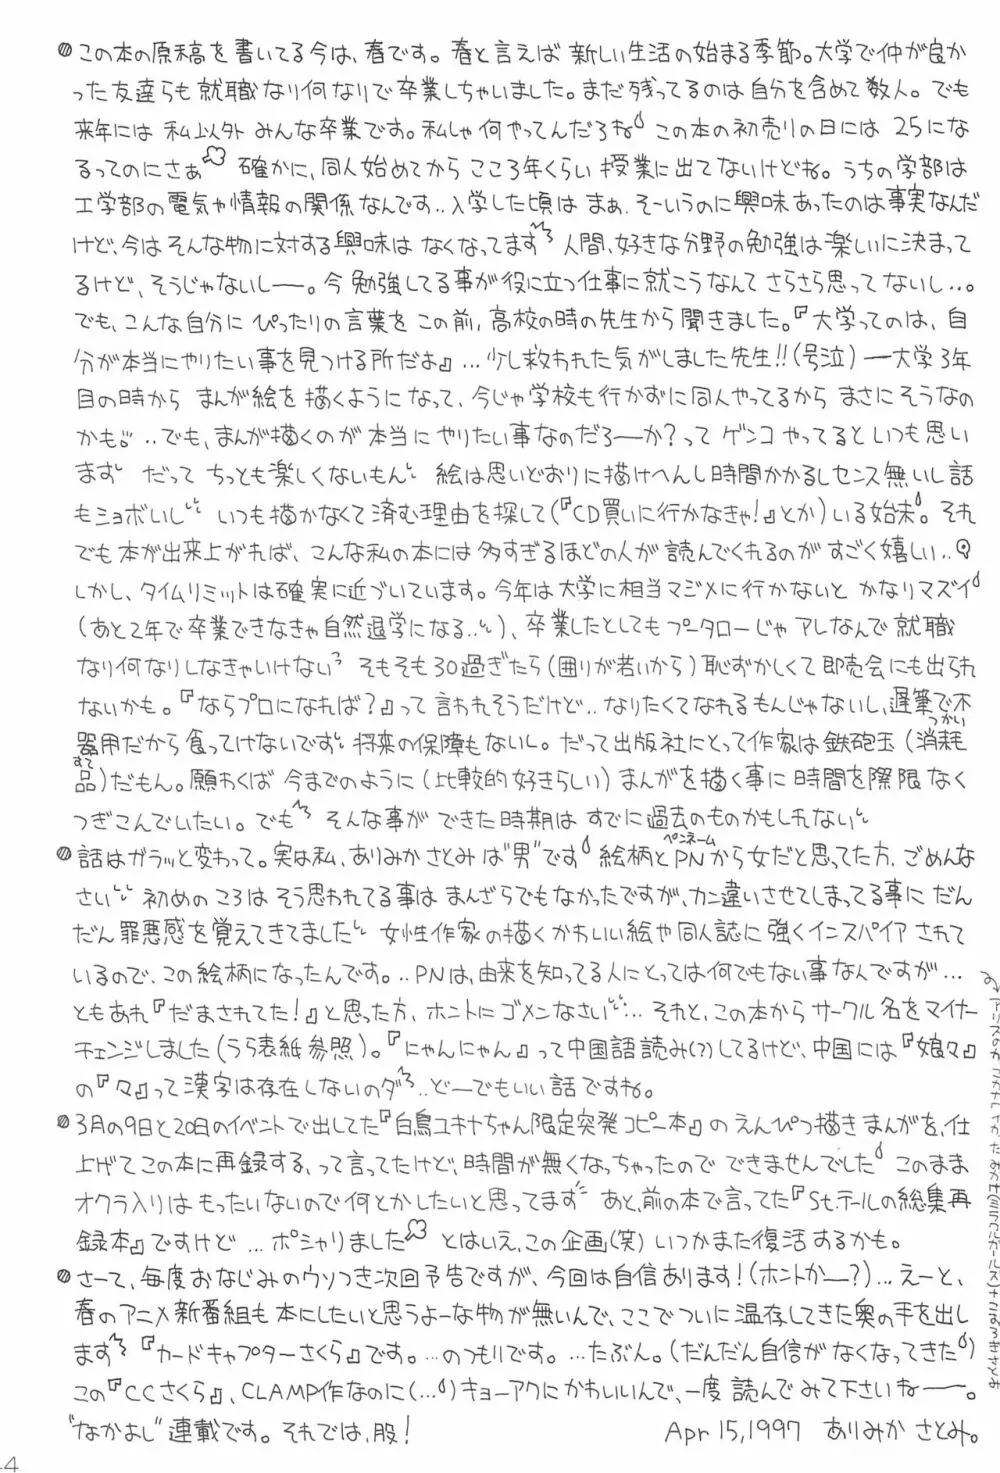 ◎この本の原稿を書いてる今は、春です。春と言えば新しい生活の始まる季節。大学で仲が良か
った友達らも就職なり何なりで卒業しちゃいました。まだ残ってるのは自分を含めて数人。でも
来年には私以外みんな卒業です。私しゃ何やってんだろね この本の初売りの日には25にな
るってのにさぁ 確かに、同人始めてからここ3年くらい授業に出てないけどね。うちの学部は
工学部の電気や情報の関係なんです‥入学した頃はまぁ、そーいうのに興味あったのは事実なんだ
けど、今はそんな物に対する興味はなくなってます 人間、好きな分野の勉強は楽しいに決まって
るけど、そうじゃないしー。今勉強してる事が役に立つ仕事に就こうなんてさらさら思ってないし…。
でも、こんな自分にぴったりの言葉をこの前、高校の時の先生から聞きました。『大学ってのは、自
分が本当にやりたい事を見つける所だよ』…少し救われた気がしました先生!!(号泣)ー大学3年
目の時からまんが絵を描くようになって、今じゃ学校も行かずに同人やってるからまさにそうなの
かも ‥でも、まんが描くのが本当にやりたい事なのだろーか?ってゲンコやってるといつも思い
ます だってちっとも楽しくないもん 絵は思いどおりに描けへんし時間かかるしセンス無いし話
もショボいし いつも描かなくて済む理由を探して(『CD買いに行かなきゃ!』とか)いる始末。それ
でも本が出来上がれば、こんな私の本には多すぎるほどの人が読んでくれるのがすごく嬉しい‥
しかし、タイムリミットは確実に近づいています。今年は大学に相当マジメに行かないとかなりマズイ
(あと2年で卒業できなきゃ自然退学になる‥)、卒業したとしてもプータローじゃアレなんで就職
なり何なりしなきゃいけない そもそも30過ぎたら(囲りが若いから)恥ずかしくて即売会にも出られ
ないかも。『ならプロになれば?』って言われそうだけど‥なりたくてなれるもんじゃないし、遅筆で不
器用だから食ってけないです 将来の保障もないし。だって出版社にとって作家は鉄砲玉(消耗
つかい
品)だもん。願わくば今までのように(比較的好きらしい)まんがを描く事に時間を際限なく
すて
つぎこんでいたい。でも そんな事ができた時期はすでに過去のものかもしれない
◎話はガラッと変わって。実は私、ありみかさとみは"男"です 絵柄とPNから女だと思ってた方、ごめんな
ペンネーム
さい 初めのころはそう思われてる事はまんざらでもなかったですが、カン違いさせてしまってる事にだん
だん罪悪感を覚えてきてました 女性作家の描くかわいい絵や同人誌に強くインスパイアされて
いるので、この絵柄になったんです。‥PNは、由来を知ってる人にとっては何でもない事なんですが…
ともあれ『だまされてた!』と思った方、ホントにゴメンなさい… それと、この本からサークル名をマイナー
チェンジしました(うら表紙参照)。『にゃんにゃん』って中国語読み(?)してるけど、中国には『娘々』
の『々』って漢字は存在しないのダ ‥どーでもいい話ですね。
◎3月の9日と20日のイベントで出してた『白鳥ユキナちゃん限定突発コピー本』のえんぴつ描きまんがを、仕
上げてこの本に再録する、って言ってたけど、時間が無くなっちゃったのでできませんでした このまま
オクラ入りはもったいないので何とかしたいと思ってます あと、前の本で言ってた『St.テールの総集再
録本』ですけど…ポシャりました とはいえ、この企画(笑)いつかまた復活するかも。
◎さーて、毎度おなじみのウソつき次回予告ですが、今回は自信あります!(ホントかー?)…えーと、
春のアニメ新番組も本にしたいと思うよーな物が無いんで、ここでついに温存してきた奥の手を出し
ます 『カードキャプターさくら』です。…のつもりです。…たぶん。(だんだん自信がなくなってきた)
この『CCさくら』、CLAMP作なのに(…)キョーアクにかわいいんで、一度読んでみて下さいねー。
"なかよし"連載です。それでは、股!
Apr 15,1997 ありみかさとみ。
44